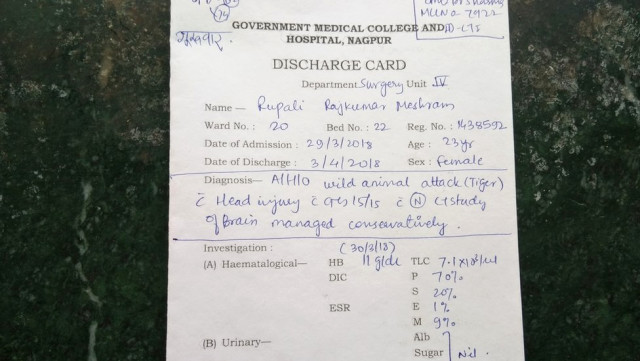 74
गुरुवार
MLC No 7922
GOVERNMENT MEDICAL COLLEGE AND
HOSPITAL, NAGPUR
DISCHARGE CARD
Department Surgery Unit IV
Name — Rupali Rajkumar Meshram
Ward No. : 20 Bed No. : 22 Reg. No. : 1438592
Date of Admission : 29/3/2018 Age : 23yr
Date of Discharge : 3/4/2018 Sex : female
Diagnosis— A/H/O wild animal attack (Tiger)
c̄ Head injury c̄ GCS 15/15 c̄ Ⓝ CT study
of Brain managed conservatively.
Investigation : (30/3/18)
(A) Haematalogical— HB 11 g/dl TLC 7.1x10³/ul
DIC P 70%
S 20%
ESR E 1%
M 9%
(B) Urinary— Alb
Sugar Nil